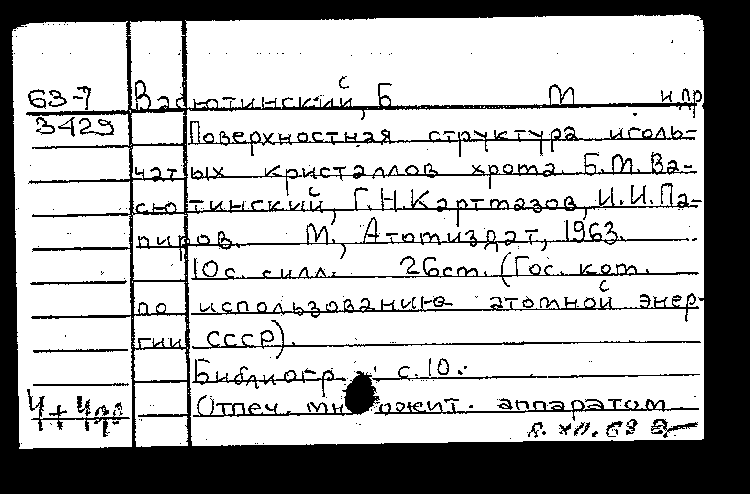 63-7 Васютинский, Б М и др.
3429 Поверхностная структура иголь-
чатых кристаллов хрома. Б.М. Ва-
сютинский, Г.Н. Картмазов, И.И. Па-
пиров. М., Атомиздат, 1963.
10 с. с илл. 26 см. (Гос. ком.
по использованию атомной энер-
гии СССР).
Библиогр.: с. 10.
Отпеч. множит. аппаратом
4+4